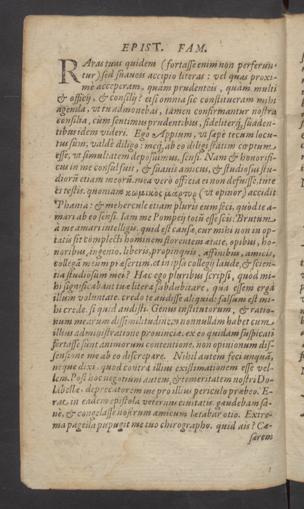 EPIST. FAM.
RAras tuas quidem (fortasse enim non perferun
tur) sed suaueis accipio literas: vel quas proxi-
mè acceperam, quàm prudenteis, quàm multi
& officij, & consilij! etsi omnia sic constitueram mihi
agenda, vt tu admonebas, tamen confirmantur nostra
consilia, cùm sentimus prudentibus, fideliterq́; suaden-
tibus idem videri. Ego Appium, vt sæpè tecum locu-
tus sum, valdè diligo: meq́; ab eo diligi statim cœptum
esse, vt simultatem deposuimus, sensi. Nam & honorifi-
cus in me consul fuit, & suauis amicus, & studiosus stu-
diorū etiam meorū. mea verò officia ei non defuisse, tu te
es testis. quoniam κωμικὸς μάρτυς (vt opinor) accidit
Phania: & mehercule etiam pluris eum feci, quòd te a-
mari ab eo sensi. Iam me Pompeij totū esse scis: Brutum
à me amari intelligis. quid est causæ, cur mihi non in op-
tatis sit complecti hominem florentem ætate, opibus, ho-
noribus, ingenio, liberis, propinquis, affinibus, amicis,
collegā meum præsertim, et in ipsa collegij laude, & scien-
tia studiosum mei? Hæc eo pluribus scripsi, quòd mi-
hi significabant tuæ literæ subdubitare, qua essem erga
illum voluntate. credo te audisse aliquid. falsum est mi-
hi crede, si quid audisti. Genus institutorum, & ratio-
num mearum dissimilitudinē nonnullam habet cum
illius administratione prouinciæ. ex eo quidam suspicati
fortasse sunt animorum contentione, non opinionum dis-
sensione me ab eo discrepare. Nihil autem feci vnquā,
neque dixi, quod contra illius existimationem esse vel-
lem. Post hoc negotium autem, & temeritatem nostri Do-
labellæ, deprecatorem me pro illius periculo præbeo. E-
rat in eadem epistola veternus ciuitatis. gaudebam sa-
nè, & congelasse nostrum amicum lætabar otio. Extre-
ma pagella pupugit me tuo chirographo. quid ais? Cæ-
sarem